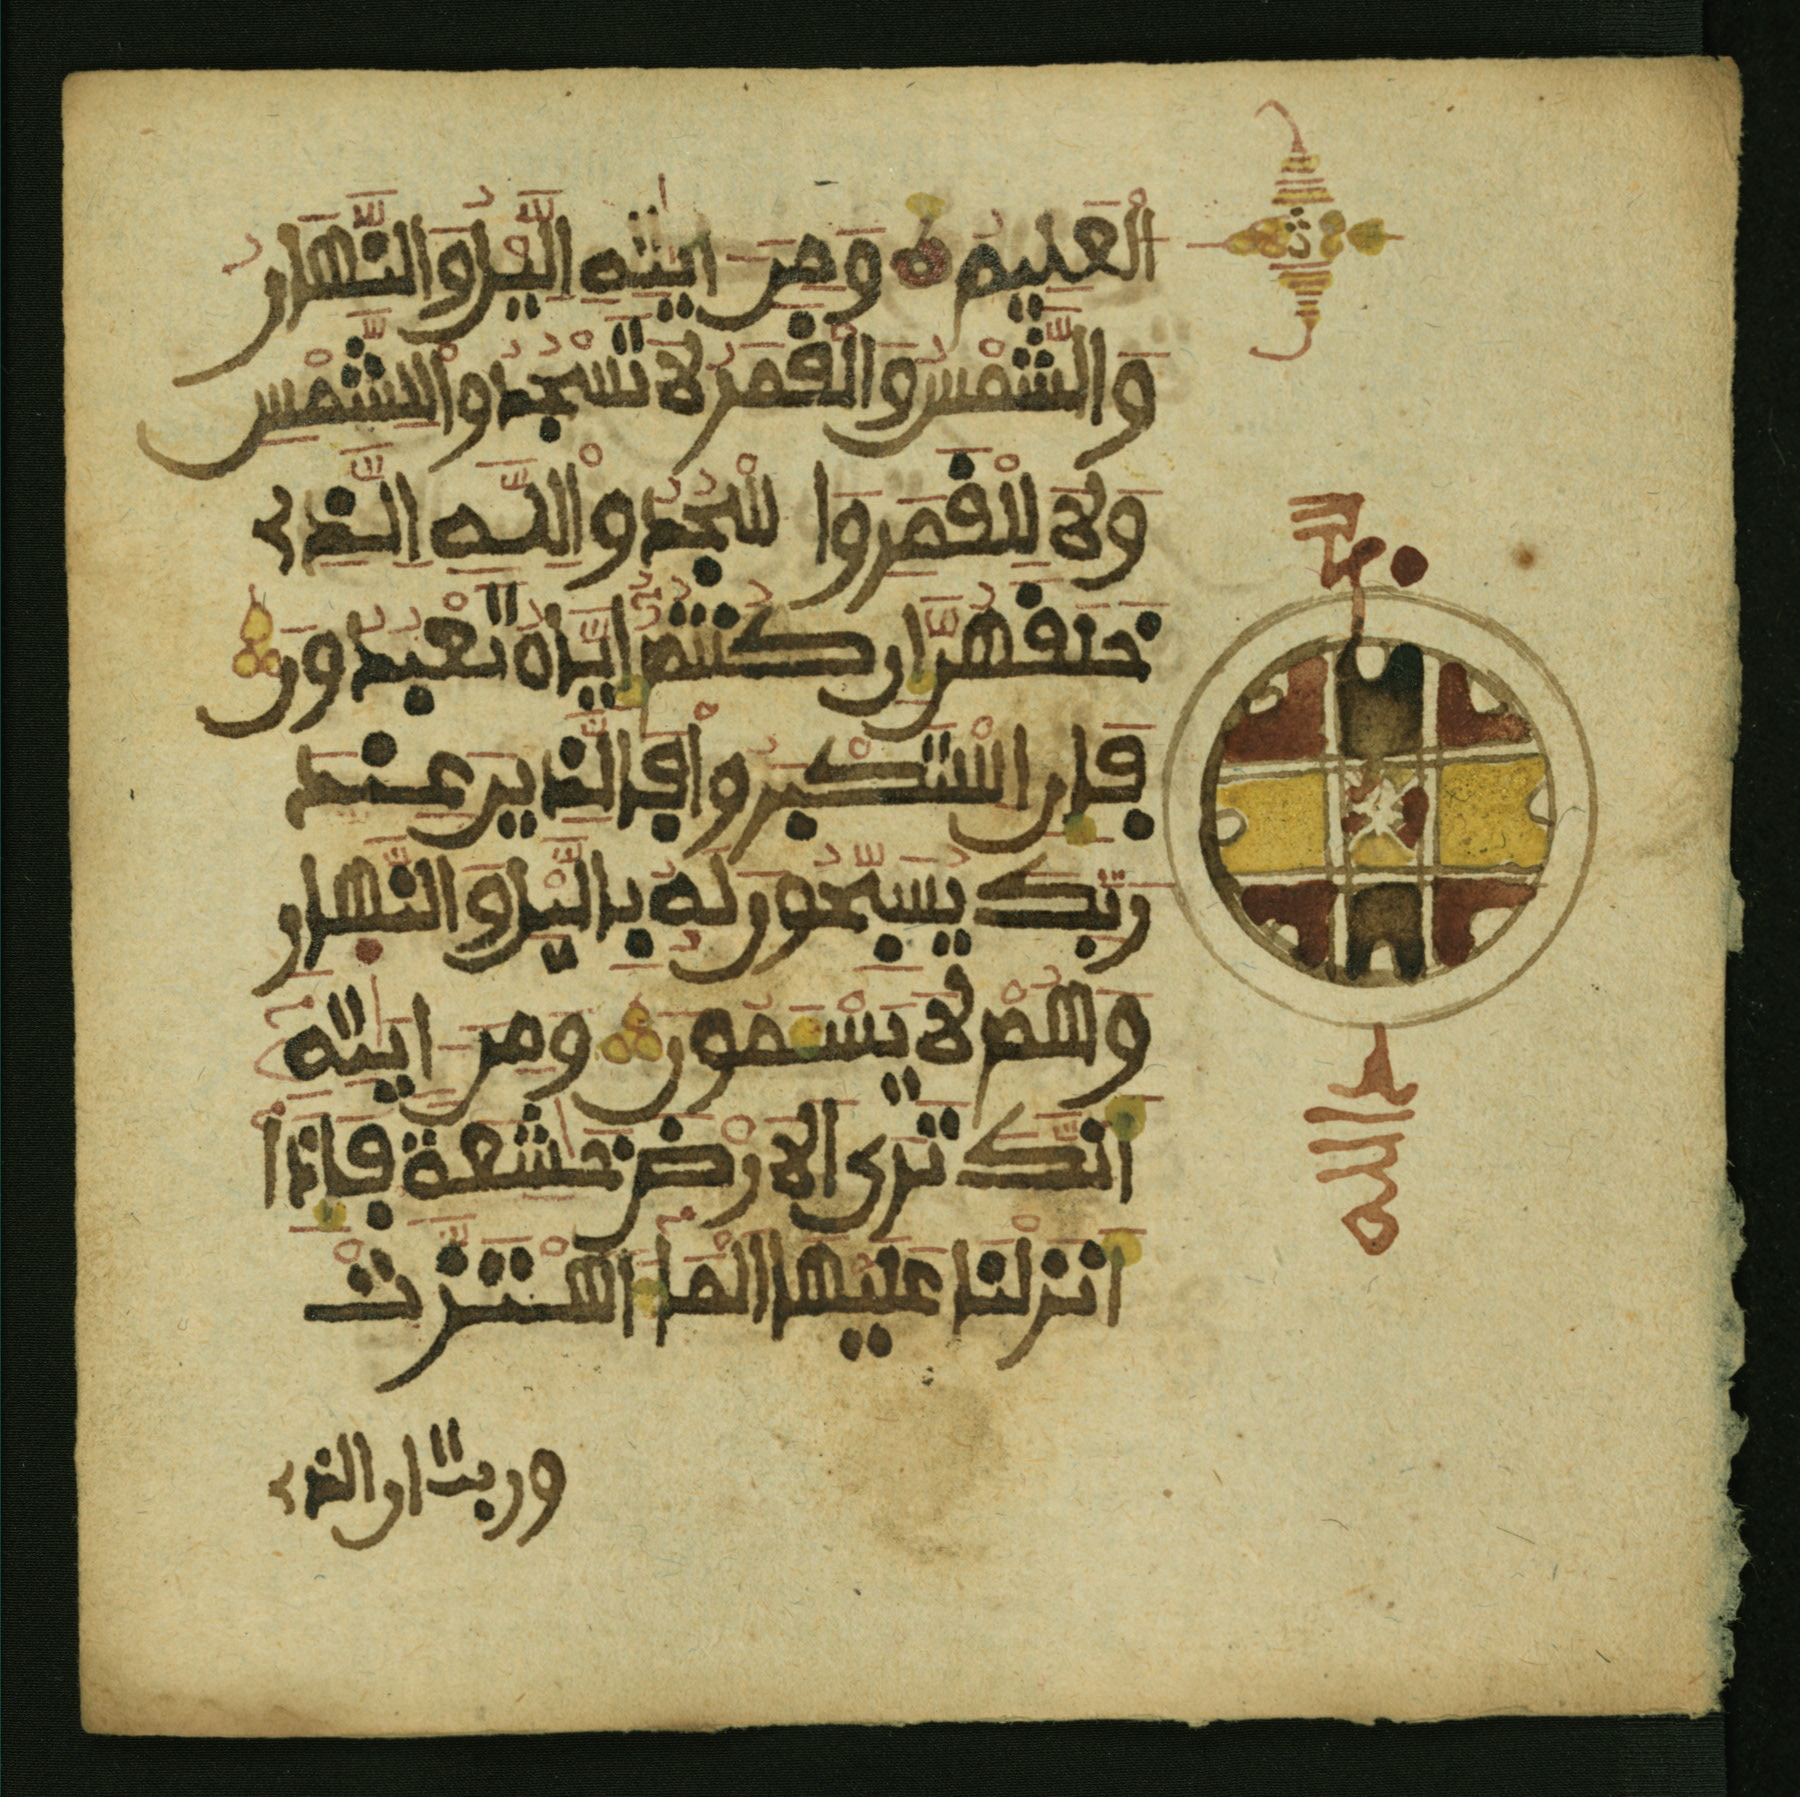 الْعَلِيمُ وَمِنَ ايَٰتِهِ اِليْلُ وَالنَّهَارُ
وَالشَّمْسُ وَالْقَمَرُ لَا تَسْجُدُوا لِلشَّمْسِ
وَلَا لِلْقَمَرِ وَاسْجُدُوا لِلهِ الَّذِي
خَلَقَهُنَّ إِن كُنتُمُ إِيَّاهُ تَعْبُدُونَ
فَإِنِ اسْتَكْبَرُوا فَالَّذِينَ عِندَ
رَبِّكَ يُسَبِّحُونَ لَهُ بِاليْلِ وَالنَّهَارِ
وَهُمْ لَا يَسْـَٔمُونَ وَمِنَ ايَٰتِهِ
أَنَّكَ تَرَى الَارْضَ خَٰشِعَةً فَإِذَا
أَنزَلْنَا عَلَيْهَا الْمَاءَ اهْتَزَّتْ
وربت ان الذي
ث
لله